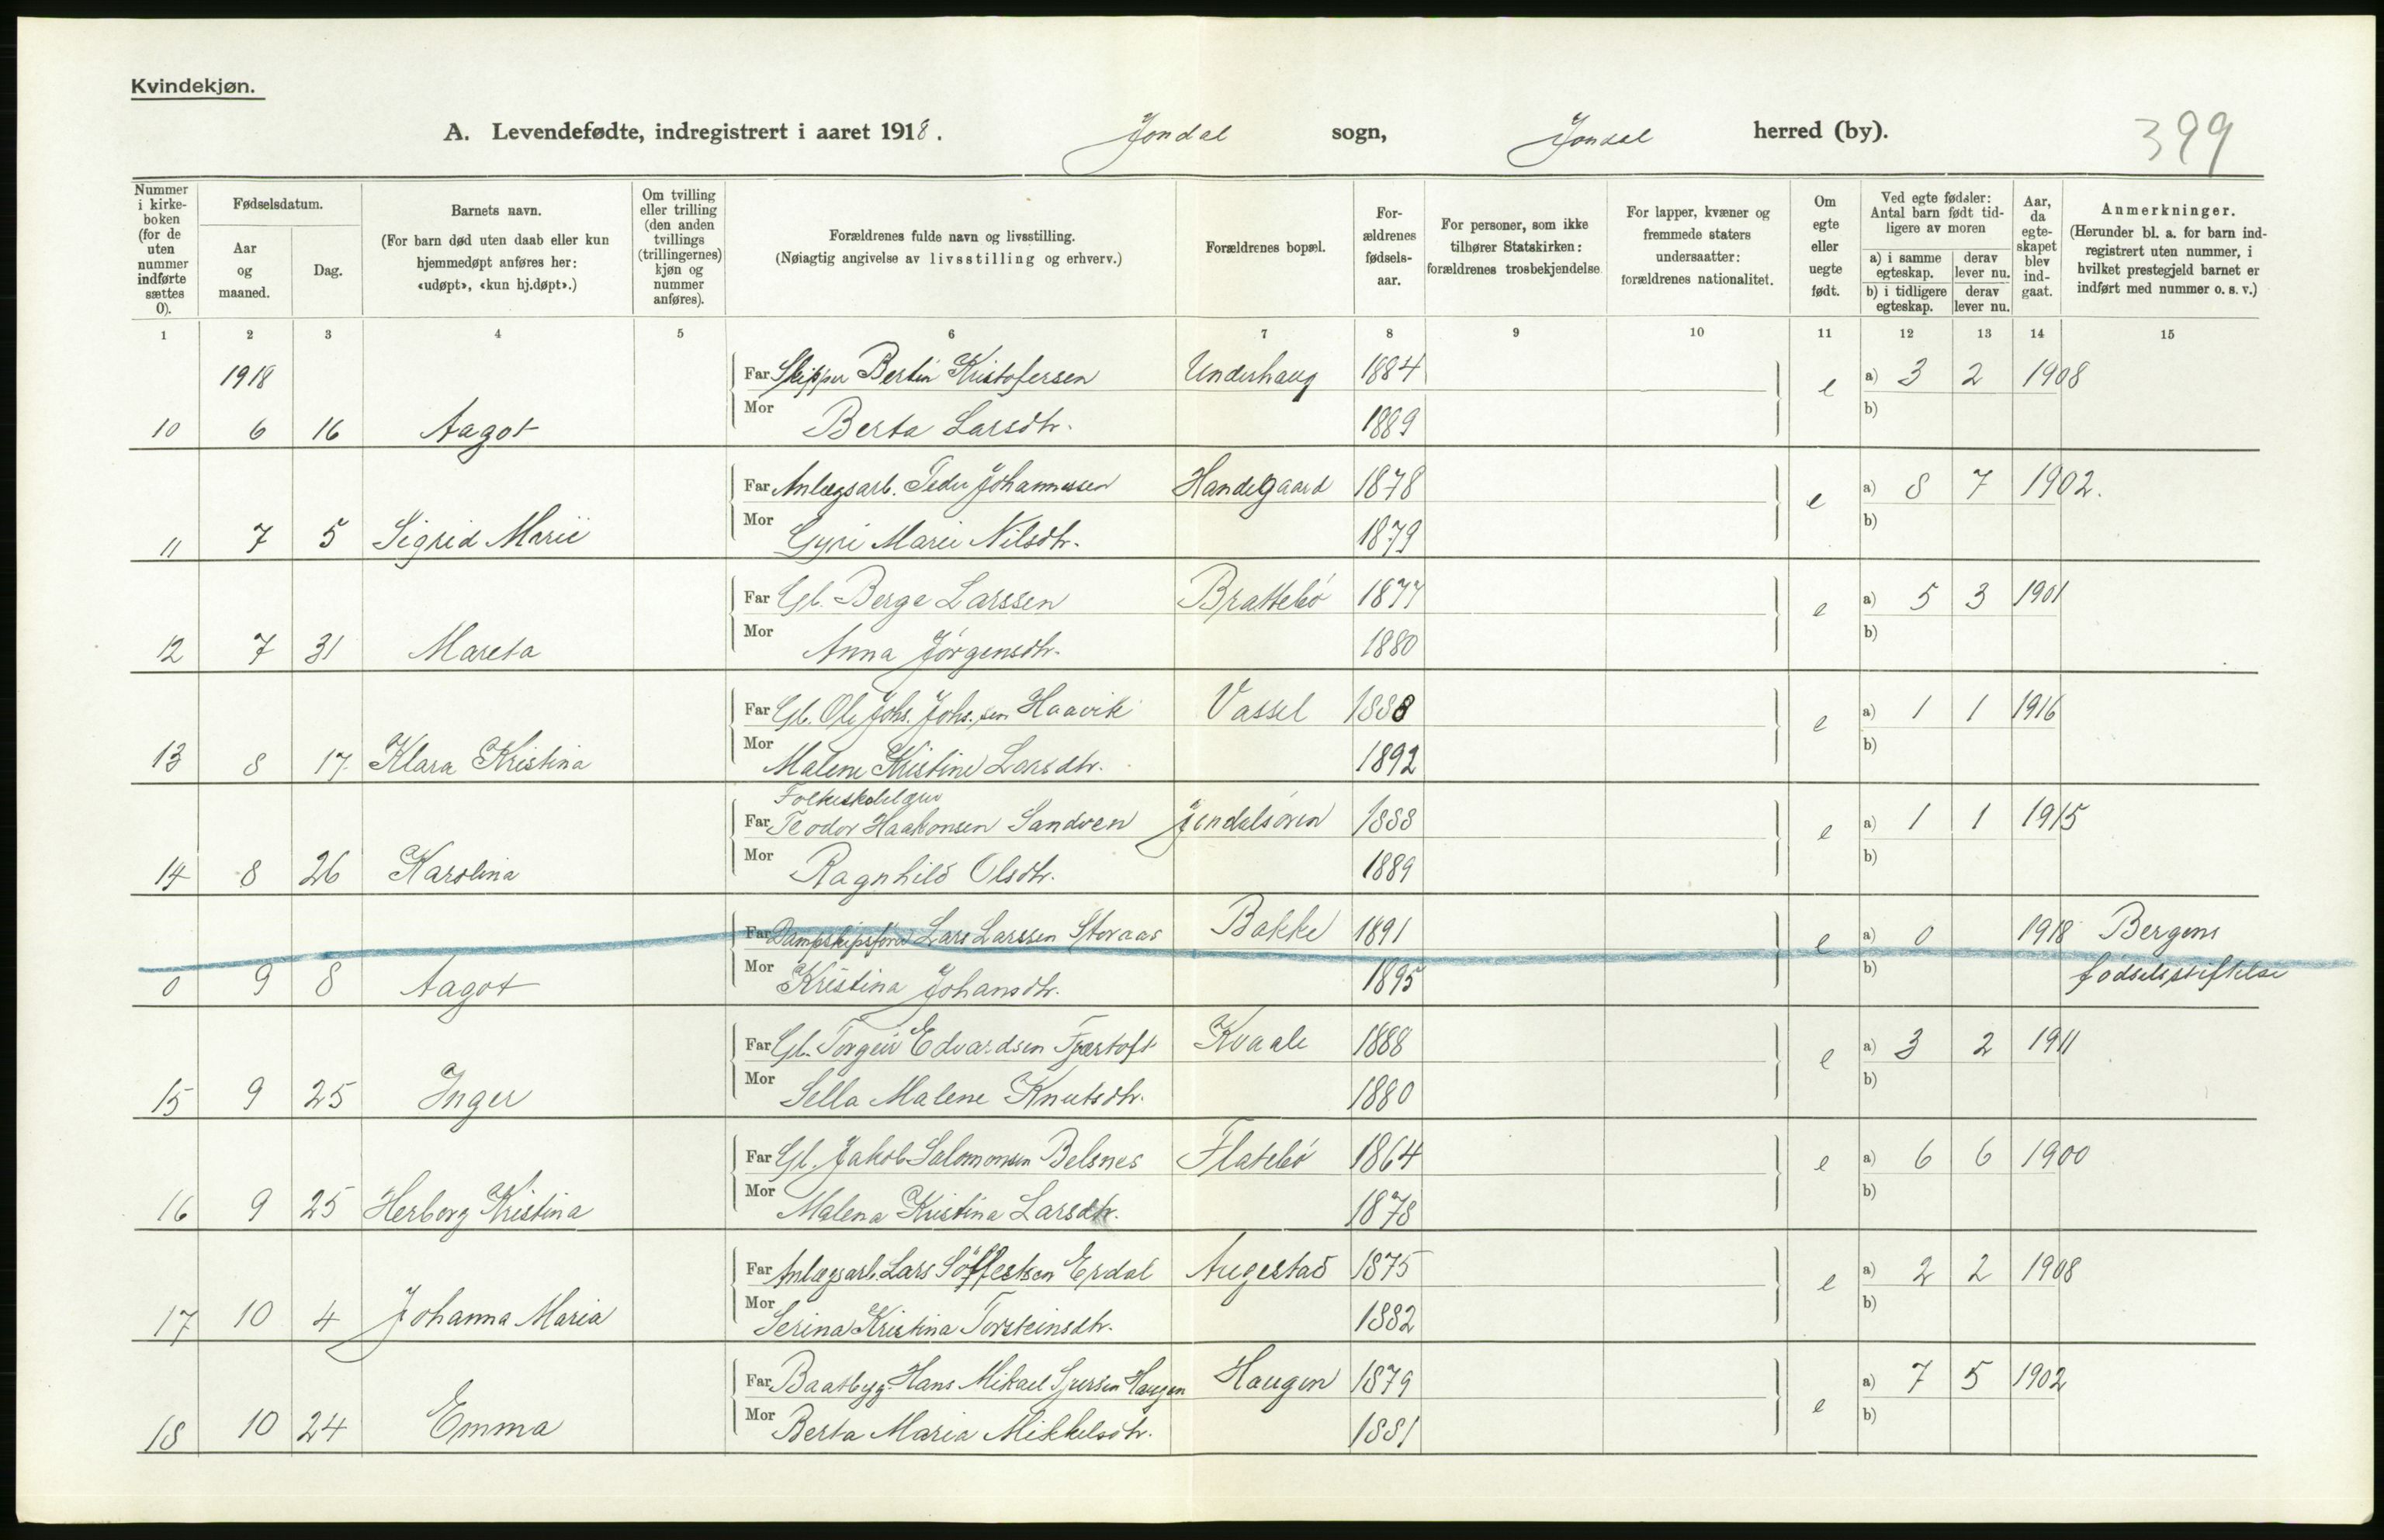 Kvindekjøn.
A. Levendefødte, indregistrert i aaret 1918. Jondal sogn, Jondal herred (by). 399
Nummer i kirkeboken (for de uten nummer indførte sættes 0).
Fødselsdatum.
Aar og maaned.
Dag.
Barnets navn.
(For barn død uten daab eller kun hjemmedøpt anføres her: «udøpt», «kun hj.døpt».)
Om tvilling eller trilling (den anden tvillings (trillingernes) kjøn og nummer anføres).
Forældrenes fulde navn og livsstilling.
(Nøiagtig angivelse av livsstilling og erhverv.)
Forældrenes bopæl.
Forældrenes fødselsaar.
For personer, som ikke tilhører Statskirken: forældrenes trosbekjendelse.
For lapper, kvæner og fremmede staters undersaatter: forældrenes nationalitet.
Om egte eller uegte født.
Ved egte fødsler: Antal barn født tidligere av moren
a) i samme egteskap. derav lever nu.
b) i tidligere egteskap. derav lever nu.
Aar, da egteskapet blev indgaat.
Anmerkninger.
(Herunder bl. a. for barn indregistrert uten nummer, i hvilket prestegjeld barnet er indført med nummer o. s. v.)
1 2 3 4 5 6 7 8 9 10 11 12 13 14 15
1918 Far Skipper Bertin Kristofersen Underhaug 1884 e a) 3 2 1908
10 6 16 Aagot Mor Berta Larsdtr. 1889 b)
Far Anlægsarb. Peder Johannessen Handegaard 1878 e a) 8 7 1902.
11 7 5 Sigrid Marie Mor Gyri Marie Nilsdtr. 1879 b)
Far Gb. Berge Larssen Brattebö 1877 e a) 5 3 1901
12 7 31 Mareta Mor Anna Jörgensdtr. 1880 b)
Far Gb. Ole Johs. Johs.sen Haavik Vassel 1888 e a) 1 1 1916
13 8 17 Klara Kristina Mor Malene Kristine Larsdtr. 1892 b)
Folkeskolelærer
Far Teodor Haakonsen Sandven Jondalsören 1888 e a) 1 1 1915
14 8 26 Karolina Mor Ragnhild Olsdtr. 1889 b)
Far Dampskipsförer Lars Larssen Storaas Bakke 1891 e a) 0 1918 Bergens
0 9 8 Aagot Mor Kristina Johansdtr. 1895 b) födselsstiftelse
Far Gb. Torgeir Edvardsen Fjærtoft Kvaale 1888 e a) 3 2 1911
15 9 25 Inger Mor Sella Malene Knutsdtr. 1880 b)
Far Gb. Jakob Salomonsen Belsnes Flatebö 1864 e a) 6 6 1900
16 9 25 Herborg Kristina Mor Malena Kristina Larsdtr. 1878 b)
Far Anlægsarb. Lars Söffestsen Erdal Augestad 1875 e a) 2 2 1908
17 10 4 Johanna Maria Mor Serina Kristina Torsteinsdtr. 1882 b)
Far Baatbygg. Hans Mikael Sjursen Haugen Haugen 1879 e a) 7 5 1902
18 10 24 Emma Mor Berta Maria Mikkelsdtr. 1881 b)